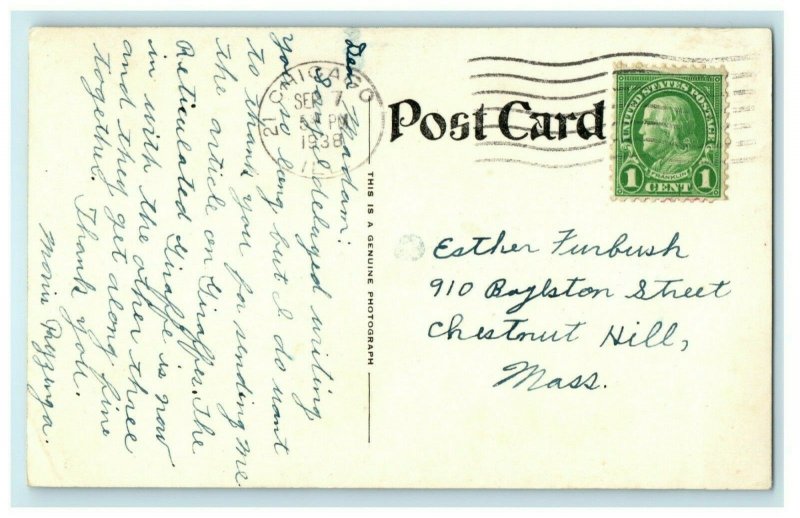 Dear Madam:
Sorry I delayed writing
you so long, but I do want
to thank you for sending me
the article on Giraffes. The
Reticulated Giraffe is now
in with the other three
and they get along fine
together. Thank you.
Marie
CHICAGO
21
SEP 7
PM
1938
ILL
Post Card
THIS IS A GENUINE PHOTOGRAPH
UNITED STATES POSTAGE
FRANKLIN
1 CENT 1
Esther Furbush
910 Boylston Street
Chestnut Hill,
Mass.